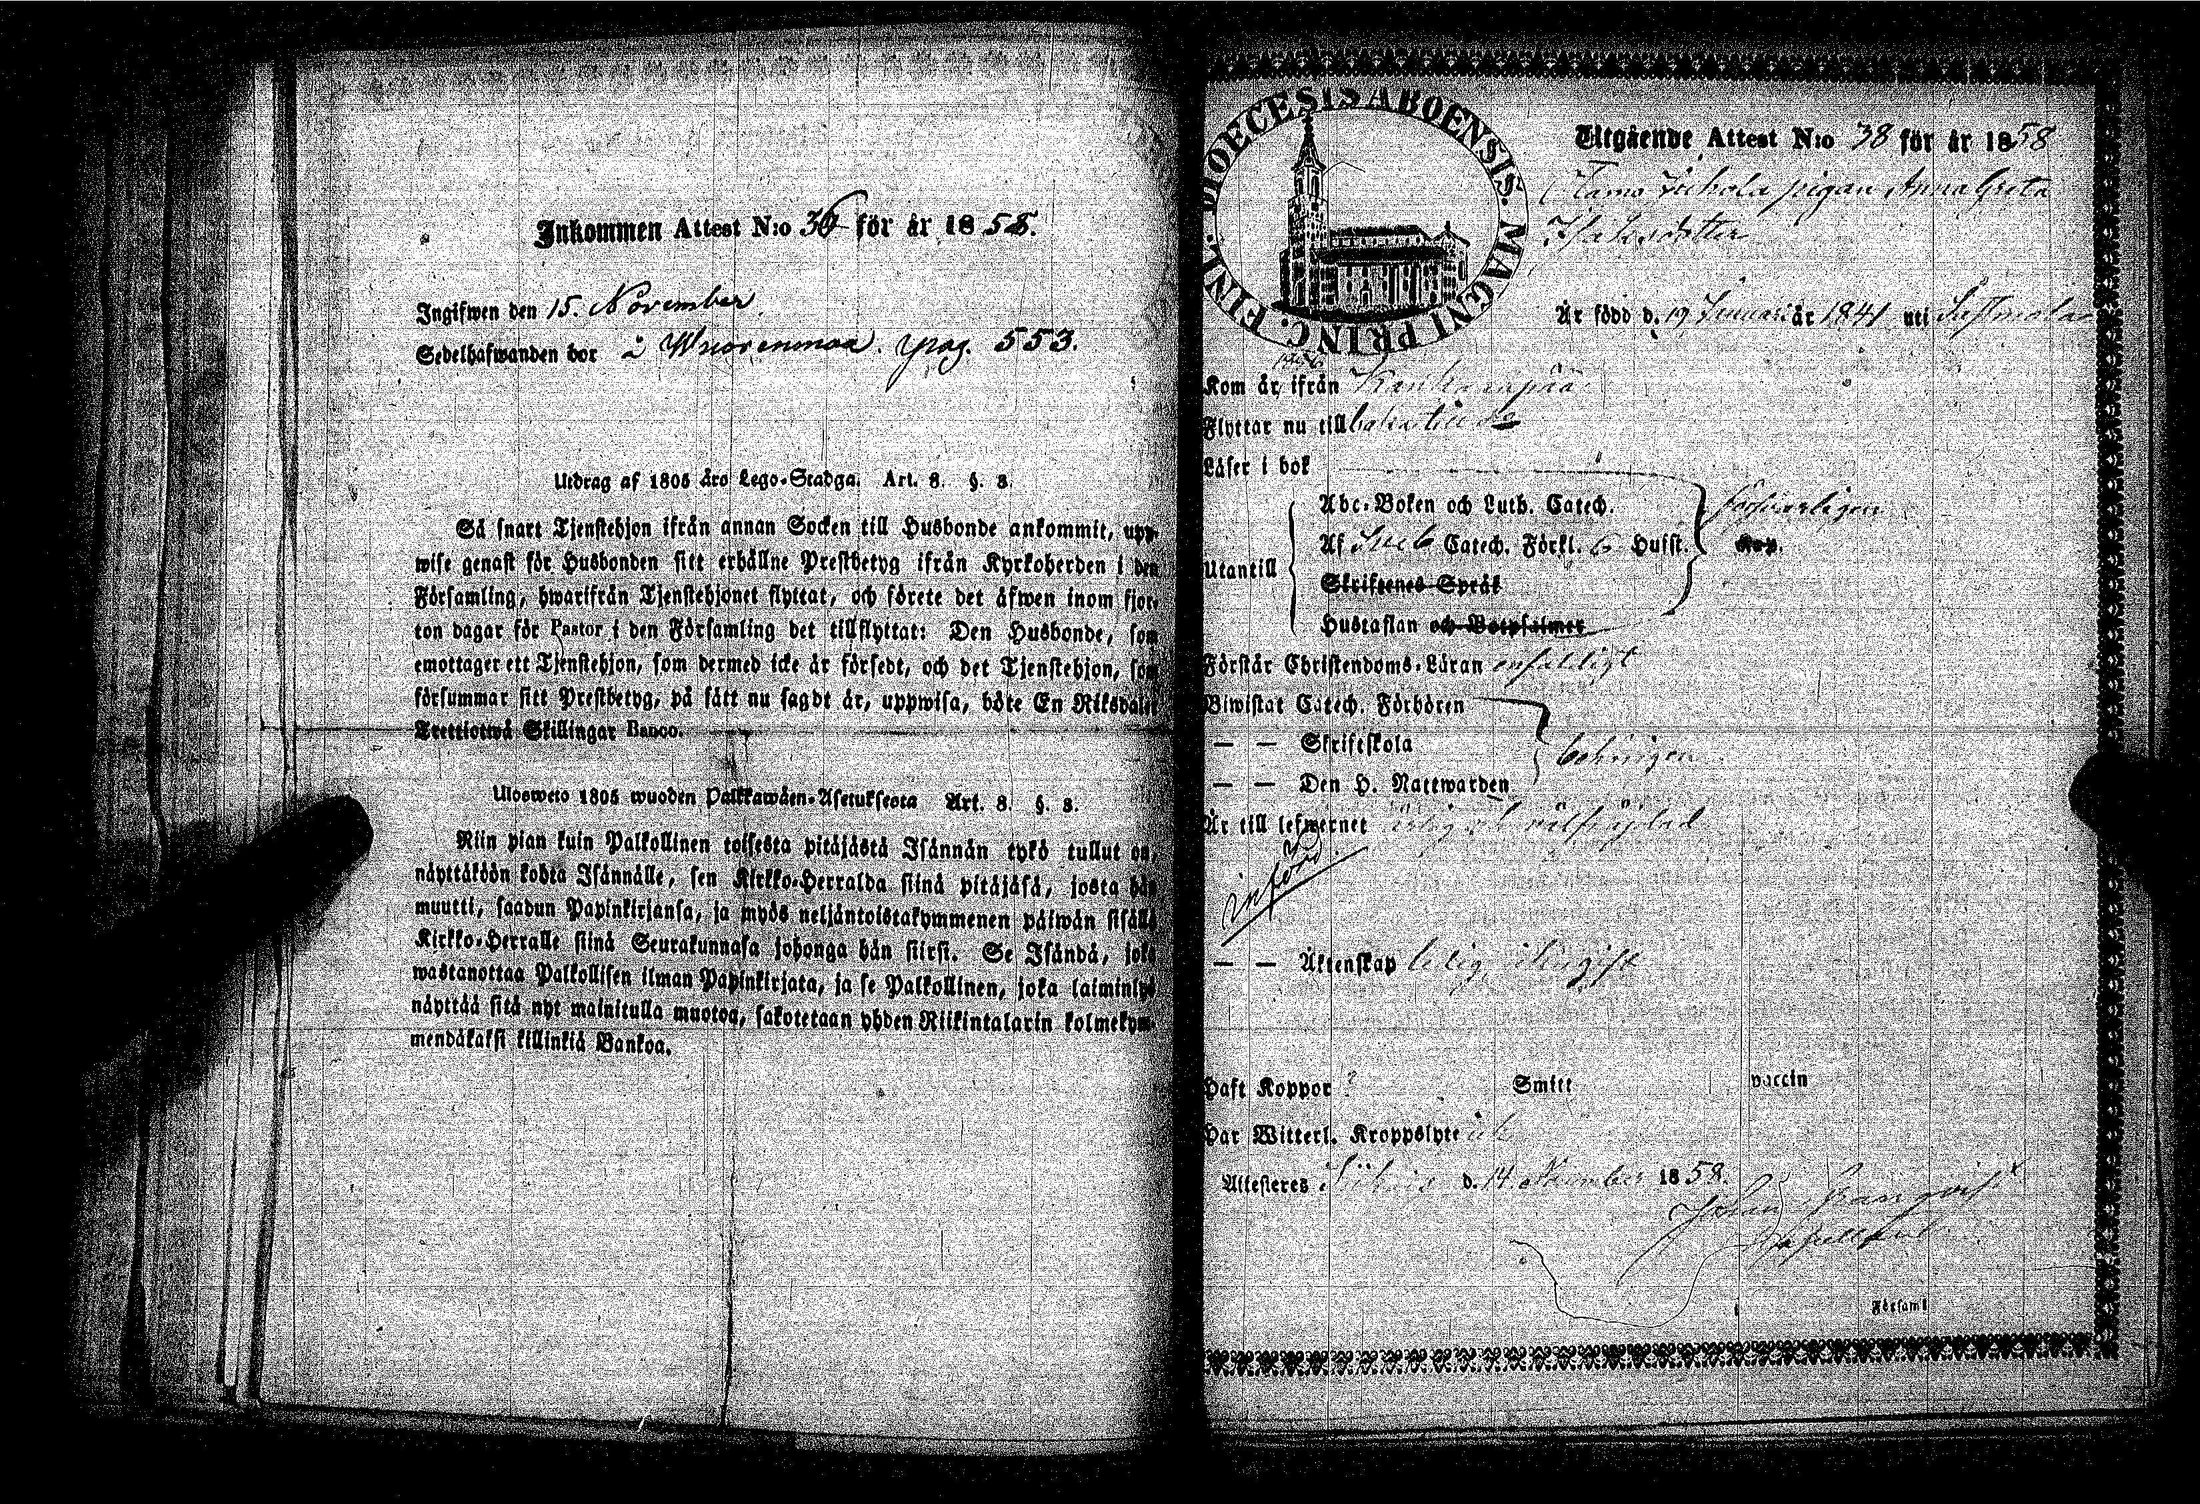 Inkommen Attest N:o 36 för år 1858.
Ingifwen den 15. November.
Sedelhafwanden bor i Wuorenmaa. pag. 553.
Utdrag af 1805 års Lego-Stadga. Art. 8. §. 8.
Så snart Tjenstehjon ifrån annan Socken till Husbonde ankommit, upp-
wise genast för Husbonden sitt erhållne Prestbetyg ifrån Kyrkoherden i den
Församling, hwarifrån Tjenstehjonet flyttat, och förete det äfwen inom fjor-
ton dagar för Pastor i den Församling det tillflyttat: Den Husbonde, som
emottager ett Tjenstehjon, som dermed icke är försedt, och det Tjenstehjon, som
försummar sitt Prestbetyg, på sätt nu sagdt är, uppwisa, böte En Riksdaler
Trettiotwå Skillingar Banco.
Ulosweto 1805 wuoden Palkkawäen-Asetuksesta Art. 8. §. 8.
Niin pian kuin Palkollinen toisesta pitäjästä Isännän tykö tullut on,
näyttäköön kohta Isännälle, sen Kirkko-Herralda siinä pitäjäsä, josta hän
muutti, saadun Papinkirjansa, ja myös neljäntoistakymmenen päiwän sisällä
Kirkko-Herralle siinä Seurakunnasa johonga hän siirsi. Se Isändä, joka
wastanottaa Palkollisen ilman Papinkirjata, ja se Palkollinen, joka laiminlyö
näyttää sitä nyt mainitulla muotoa, sakotetaan yhden Riikintalarin kolmekym-
mendäkaksi killinkiä Bankoa.
DIOECESIS ABOENSIS. MAGNI PRINC. FINL.
Utgående Attest N:o 38 för år 1858
pigan Anna Greta
Isaksdotter
Är född d. 19 Januari år 1841 uti Sastmola
Kom år ifrån Kankaanpää
Flyttar nu till
Läser i bok
Utantill
Abc-Boken och Luth. Catech.
försvarligen
Af Sveb Catech. Förkl. 6 Hufst.
Skriftenes Språk
Hustaflan och Botpsalmer
Förstår Christendoms-Läran enfaldigt
Biwistat Catech. Förhören
— — Skriftskola
behörigen
— — Den H. Nattwarden
Är till lefwernet ärlig och välfräjdad
införd
— — Äktenskap ledig ogift
Haft Koppor ? Smitt vaccin
Har Witterl. Kroppslyte
Attesteras d. 14 November 1858.
Johan
Församl